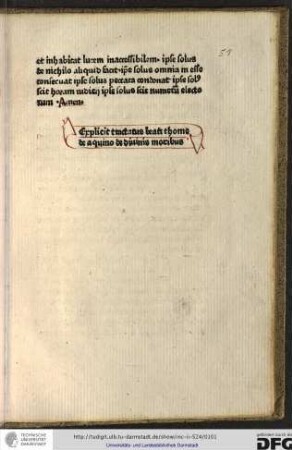 et inhabitat lucem inaccessibilem· ipse solus
de nichilo aliquid facit· ip̄e solus omnia in esse
conseruat ipse solus peccata condonat· ipse solꝰ
scit horam iudicij ipse solus scit numerū electo
rum ·Amen·
Explicit tractatus beati thome
de aquino de diuinis moribus
51
http://tudigit.ulb.tu-darmstadt.de/show/inc-ii-524/0101
Universitäts- und Landesbibliothek Darmstadt
TECHNISCHE
UNIVERSITÄT
DARMSTADT
DFG